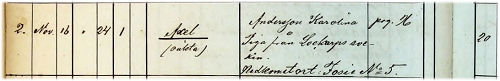 2. Nov. 16 " 24 1 Axel Andersson Karolina pig. H 20
(oäkta) Piga från Lockarps soc-
ken.
Nedkomstort: Fosie No 5.